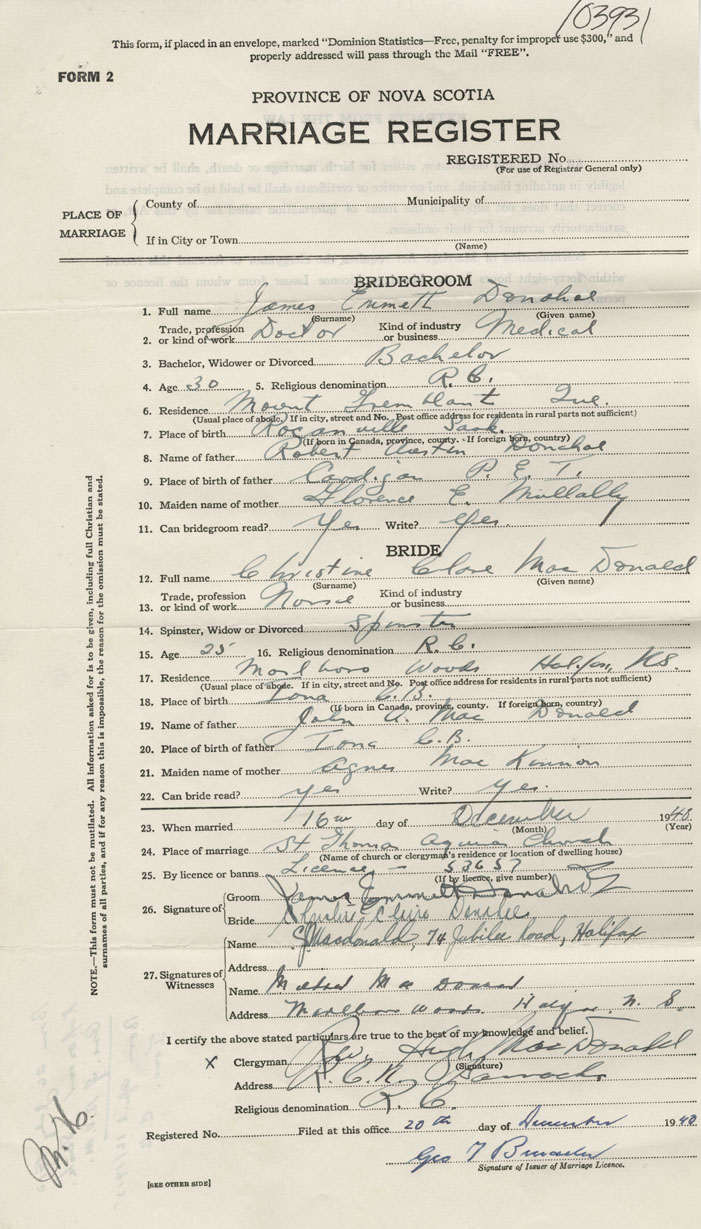 103931
This form, if placed in an envelope, marked "Dominion Statistics—Free, penalty for improper use $300," and
properly addressed will pass through the Mail "FREE".
FORM 2
PROVINCE OF NOVA SCOTIA
MARRIAGE REGISTER
REGISTERED No.
(For use of Registrar General only)
PLACE OF MARRIAGE
County of Municipality of
If in City or Town
(Name)
BRIDEGROOM
1. Full name James Emmett Donahoe
(Surname) (Given name)
2. Trade, profession or kind of work Doctor Kind of industry or business Medical
3. Bachelor, Widower or Divorced Bachelor
4. Age 30 5. Religious denomination R. C.
6. Residence Mount Tremblant Que.
(Usual place of abode. If in city, street and No. Post office address for residents in rural parts not sufficient)
7. Place of birth Rocanville Sask.
(If born in Canada, province, county. - If foreign born, country)
8. Name of father Robert Austin Donahoe
9. Place of birth of father Cardigan P. E. I.
10. Maiden name of mother Florence E. Mullally
11. Can bridegroom read? Yes Write? Yes.
BRIDE
12. Full name Christine Clare Mac Donald
(Surname) (Given name)
13. Trade, profession or kind of work Nurse Kind of industry or business
14. Spinster, Widow or Divorced Spinster
15. Age 25 16. Religious denomination R. C.
17. Residence Marlboro Woods Halifax, N.S.
(Usual place of abode. If in city, street and No. Post office address for residents in rural parts not sufficient)
18. Place of birth Iona C.B.
(If born in Canada, province, county. If foreign born, country)
19. Name of father John A. Mac Donald
20. Place of birth of father Iona C.B.
21. Maiden name of mother Agnes Mac Kinnon
22. Can bride read? Yes Write? Yes.
23. When married 16th day of December 1940
(Month) (Year)
24. Place of marriage St Thomas Church
(Name of church or clergyman's residence or location of dwelling house)
25. By licence or banns Licence — 53657
(If by licence, give number)
26. Signature of
Groom James Emmett Donahoe
Bride Claire Donahoe
27. Signatures of Witnesses
Name S Macdonald, 74 Jubilee Road, Halifax
Address
Name Mildred Mac Donald
Address Marlboro Woods Halifax N. S.
I certify the above stated particulars are true to the best of my knowledge and belief.
X Clergyman Rev. Hugh MacDonald
(Signature)
Address R. C. N. Barracks
Religious denomination R. C.
Registered No. Filed at this office 20th day of December 1940
Geo T
Signature of Issuer of Marriage Licence.
[SEE OTHER SIDE]
NOTE.—This form must not be mutilated. All information asked for is to be given, including full Christian and
surnames of all parties, and if for any reason this is impossible, the reason for the omission must be stated.